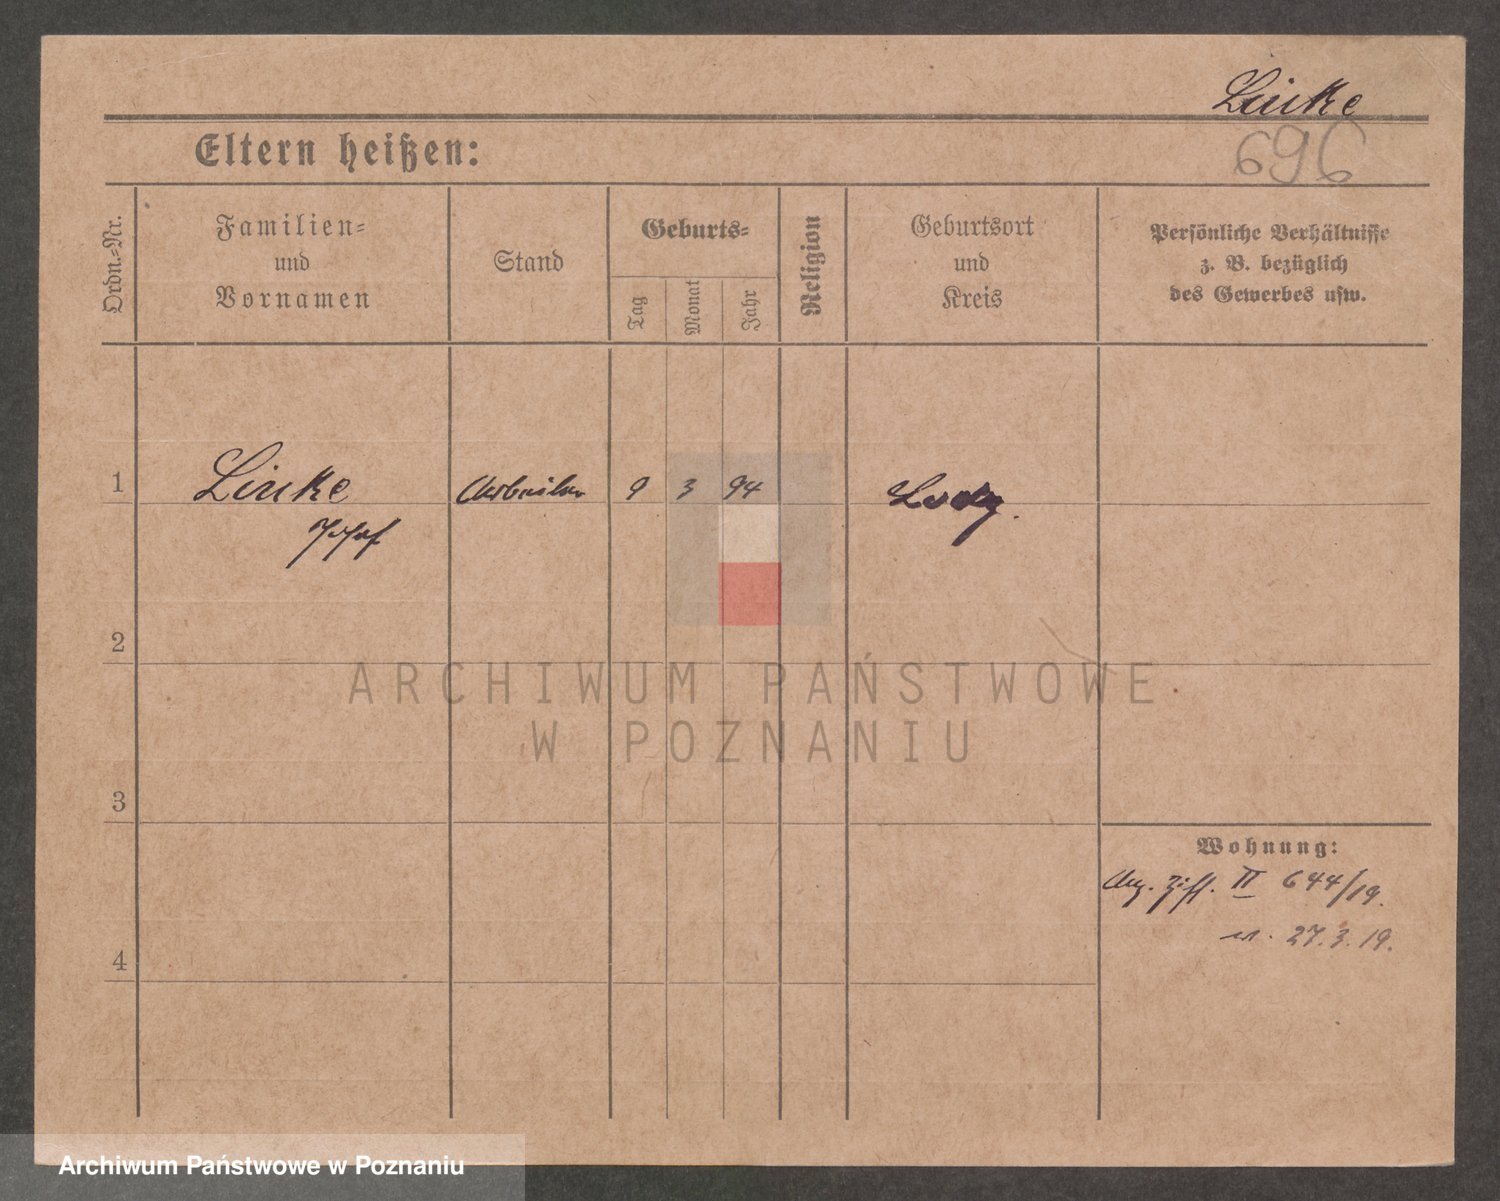 Linke
696
Eltern heißen:
Ordn.-Nr.
Familien-
und
Vornamen
Stand
Geburts-
Tag
Monat
Jahr
Religion
Geburtsort
und
Kreis
Persönliche Verhältnisse
z. B. bezüglich
des Gewerbes usw.
1
Linke
Josef
Arbeiter
9
3
94
Lodz.
2
ARCHIWUM PAŃSTWOWE
W POZNANIU
3
Wohnung:
II 644/19.
27.3.19.
4
Archiwum Państwowe w Poznaniu